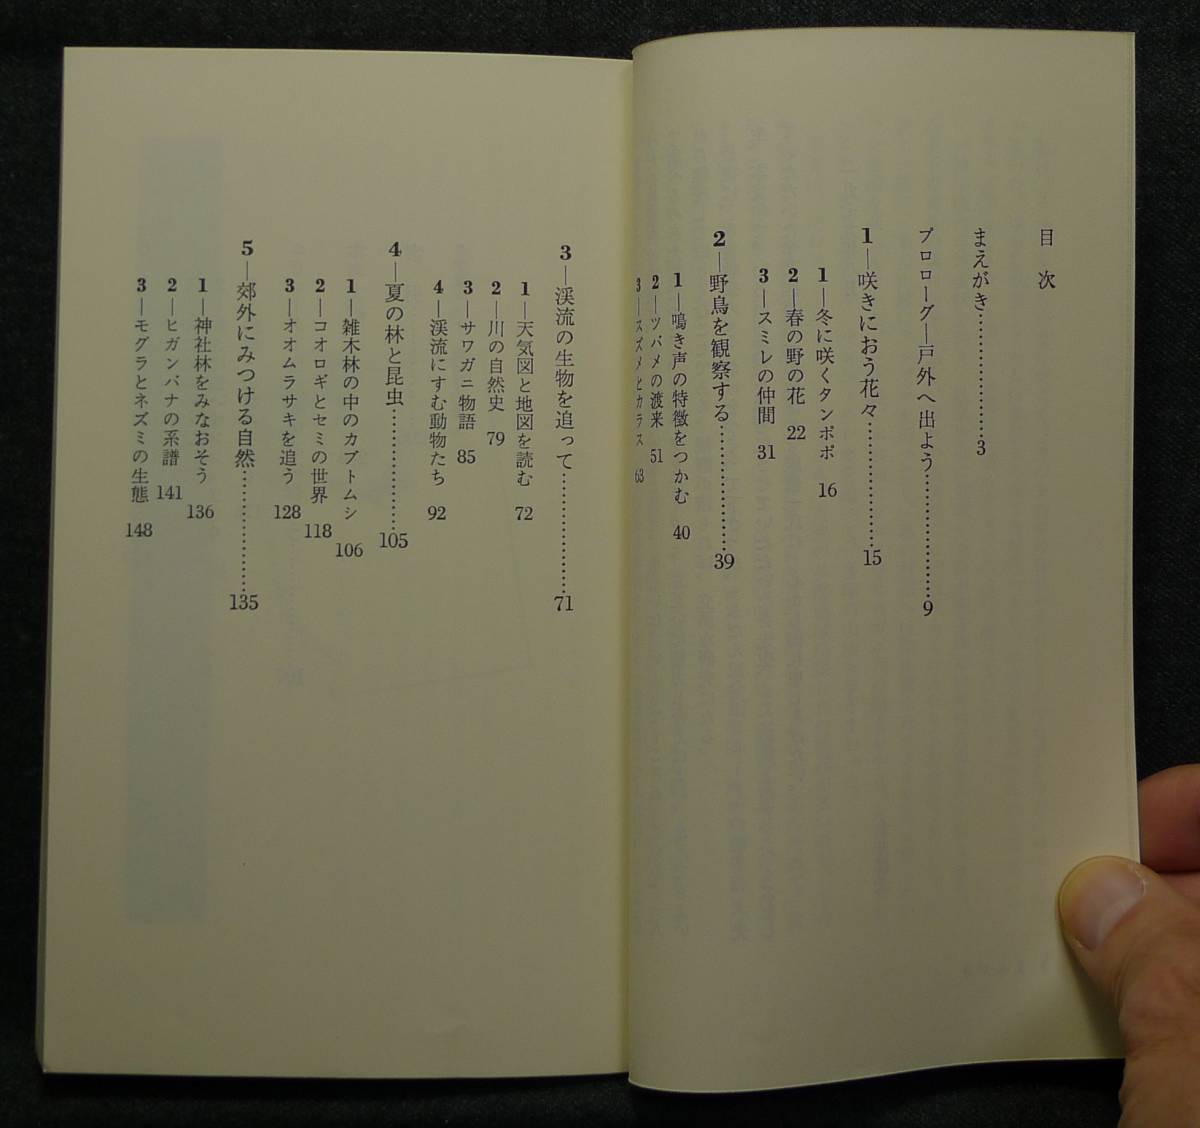 目次
まえがき………………3
プロローグ―戸外へ出よう………………9
1―咲きにおう花々………………15
1―冬に咲くタンポポ 16
2―春の野の花 22
3―スミレの仲間 31
2―野鳥を観察する………………39
1―鳴き声の特徴をつかむ 40
2―ツバメの渡来 51
3―スズメとカラス 63
3―渓流の生物を追って………………71
1―天気図と地図を読む 72
2―川の自然史 79
3―サワガニ物語 85
4―渓流にすむ動物たち 92
4―夏の林と昆虫………………105
1―雑木林の中のカブトムシ 106
2―コオロギとセミの世界 118
3―オオムラサキを追う 128
5―郊外にみつける自然………………135
1―神社林をみなおそう 136
2―ヒガンバナの系譜 141
3―モグラとネズミの生態 148